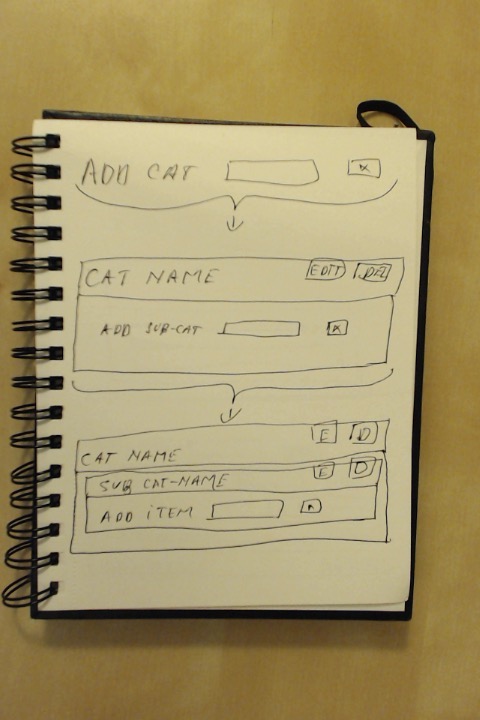 ADD CAT
CAT NAME EDIT DEL
ADD SUB-CAT
E D
CAT NAME
SUB CAT-NAME E D
ADD iTEM